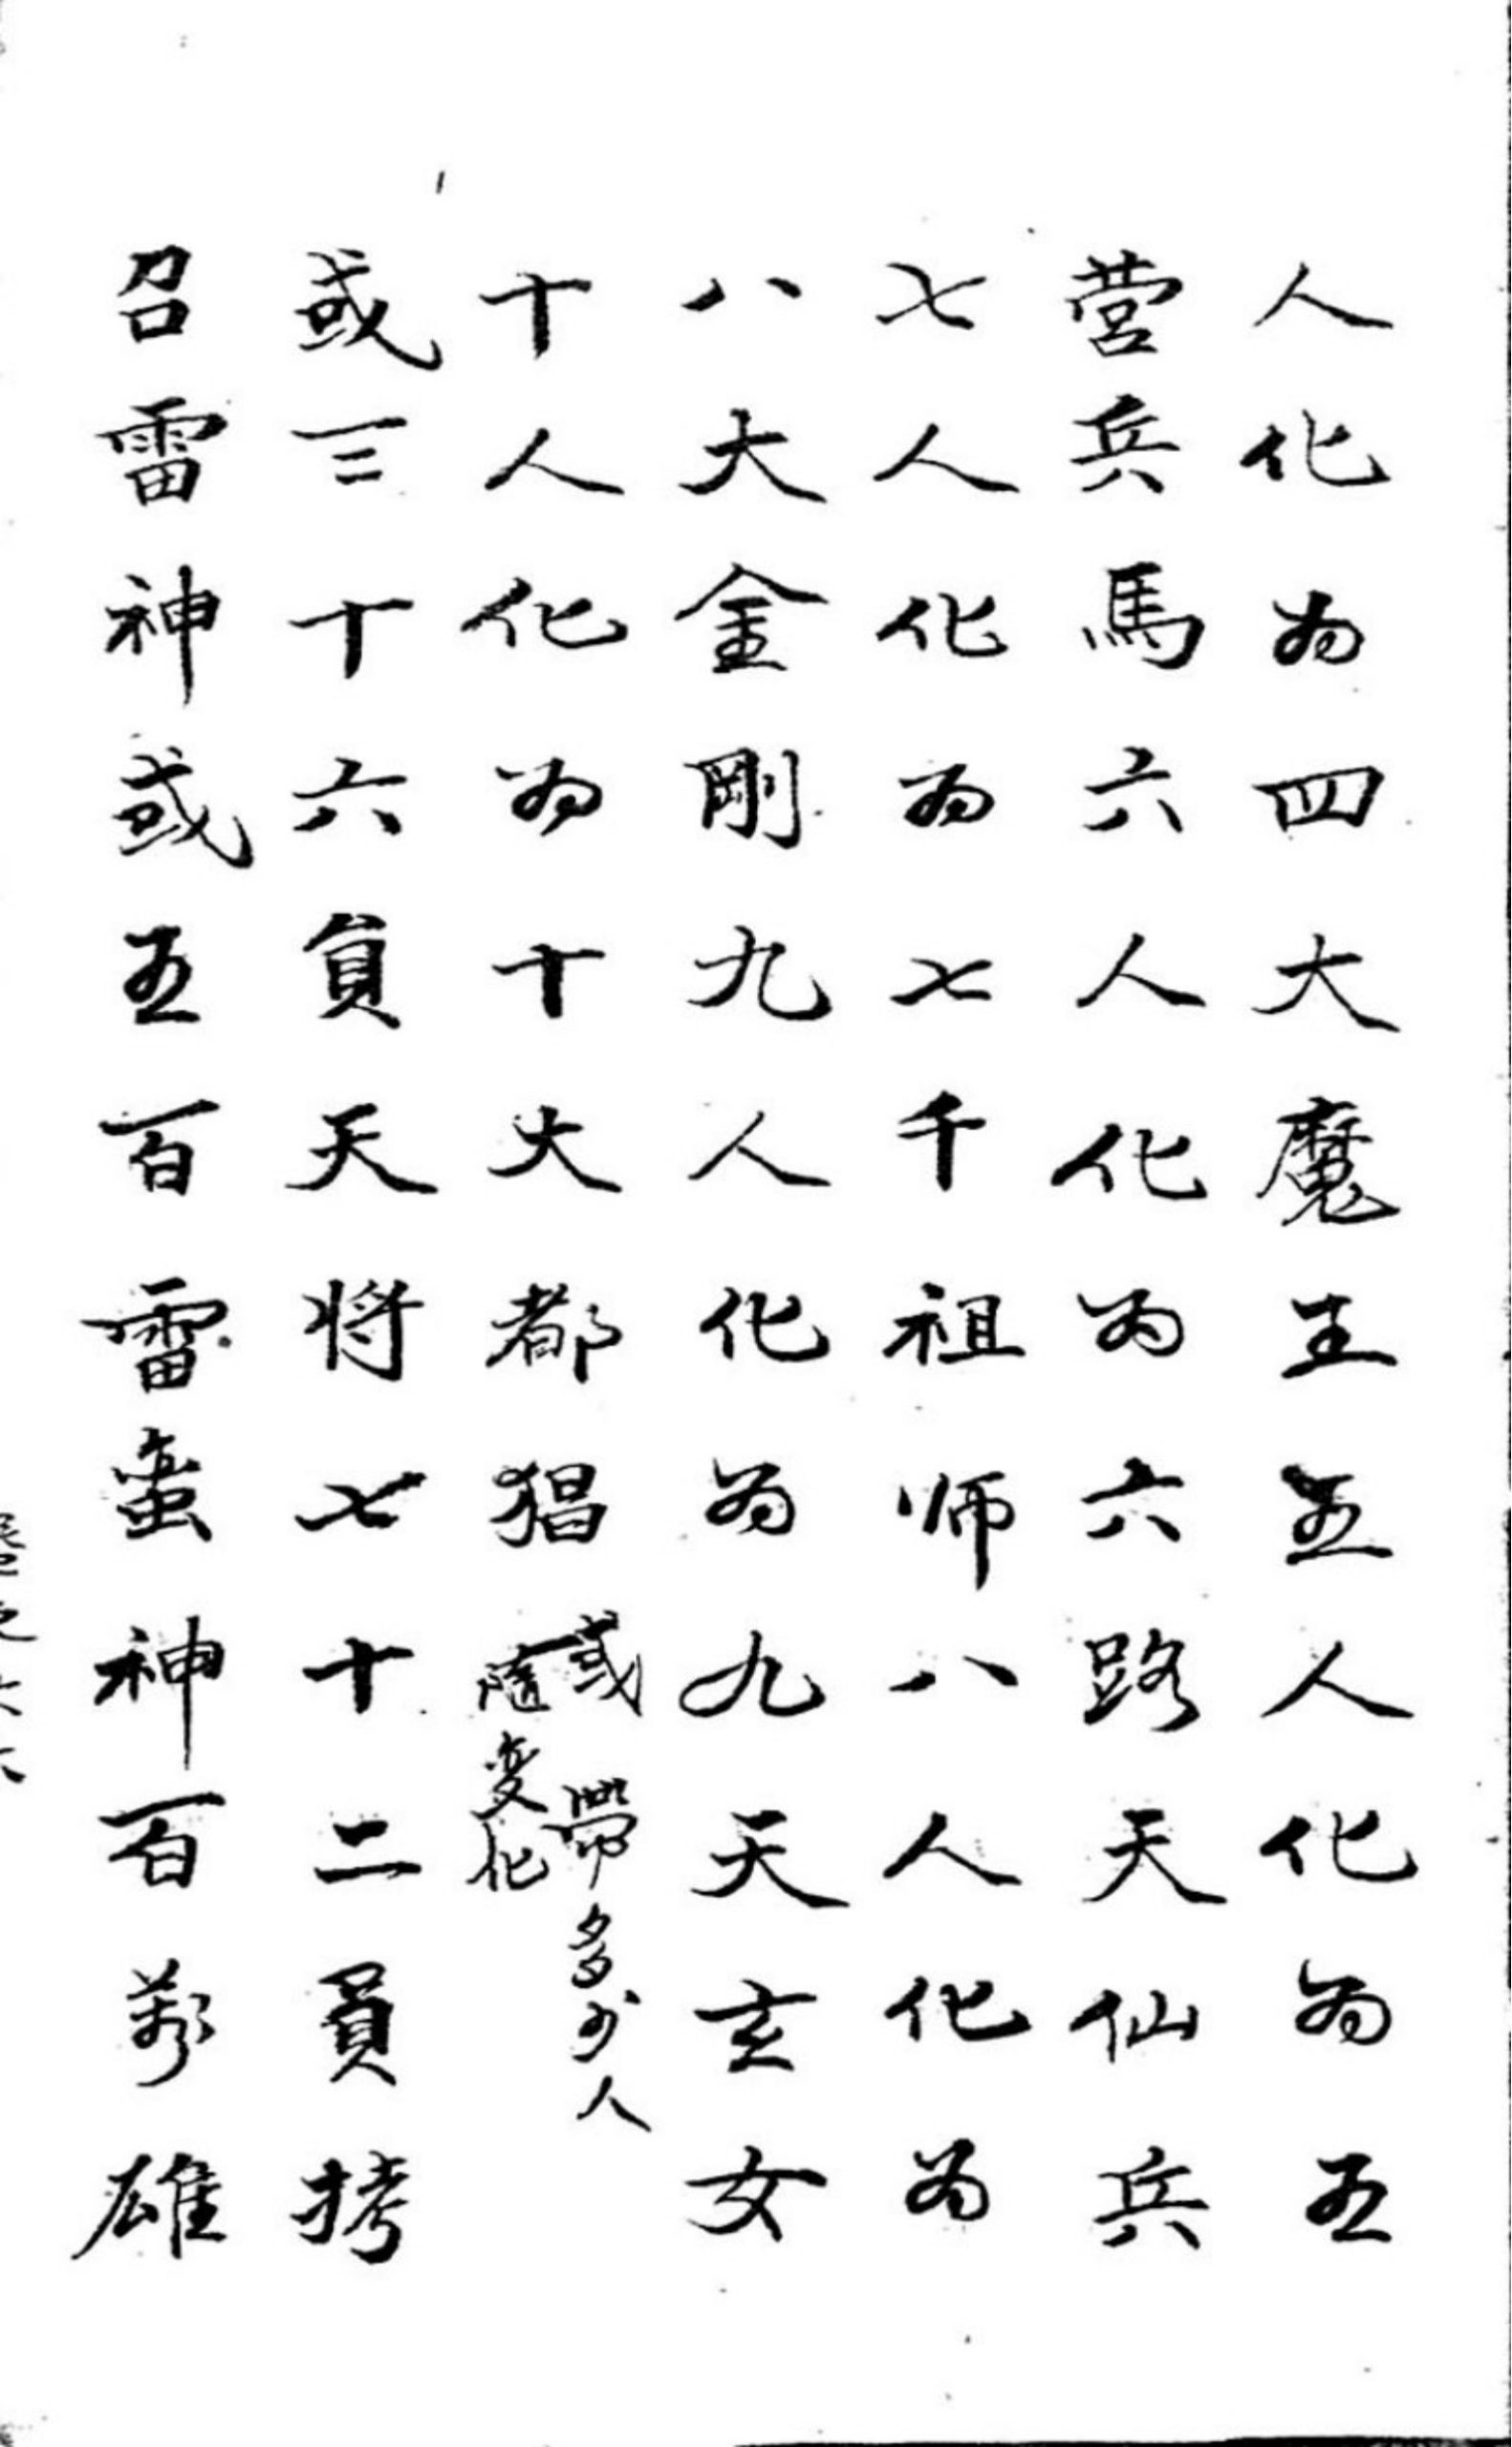 人化为四大魔王五人化为五
营兵馬六人化为六路天仙兵
七人化为七千祖师八人化为
八大金剛九人化为九天玄女
十人化为十大都猖
或帶多少人
隨变化
或三十六員天将七十二員拷
召雷神或五百雷蛮神百萬雄